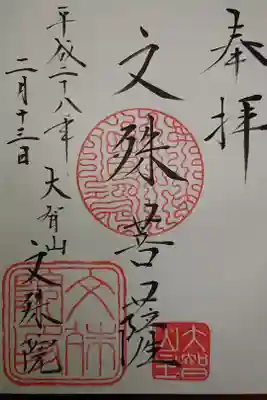 奉拝
文殊菩薩
平成二十八年
二月十三日
大智山
文殊院